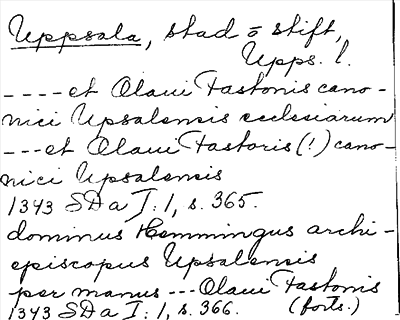 Uppsala, stad o stift,
Upps. l.
---- et Olaui Fastonis cano-
nici Upsalensis ecclesiarum
--- et Olaui Fastoris (!) cano-
nici Upsalensis
1343 SD a I: 1, s. 365.
dominus Hemmingus archi-
episcopus Upsalensis
per manus --- Olaui Fastonis
1343 SD a I: 1, s. 366. (forts.)